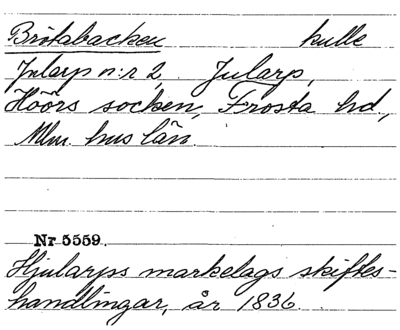 Brötabacken kulle
Jularp n:r 2, Jularp,
Höörs socken, Frosta hd,
Mlm. hus län.
Nr 5559.
Hjularps markelags skiftes-
handlingar, år 1836.